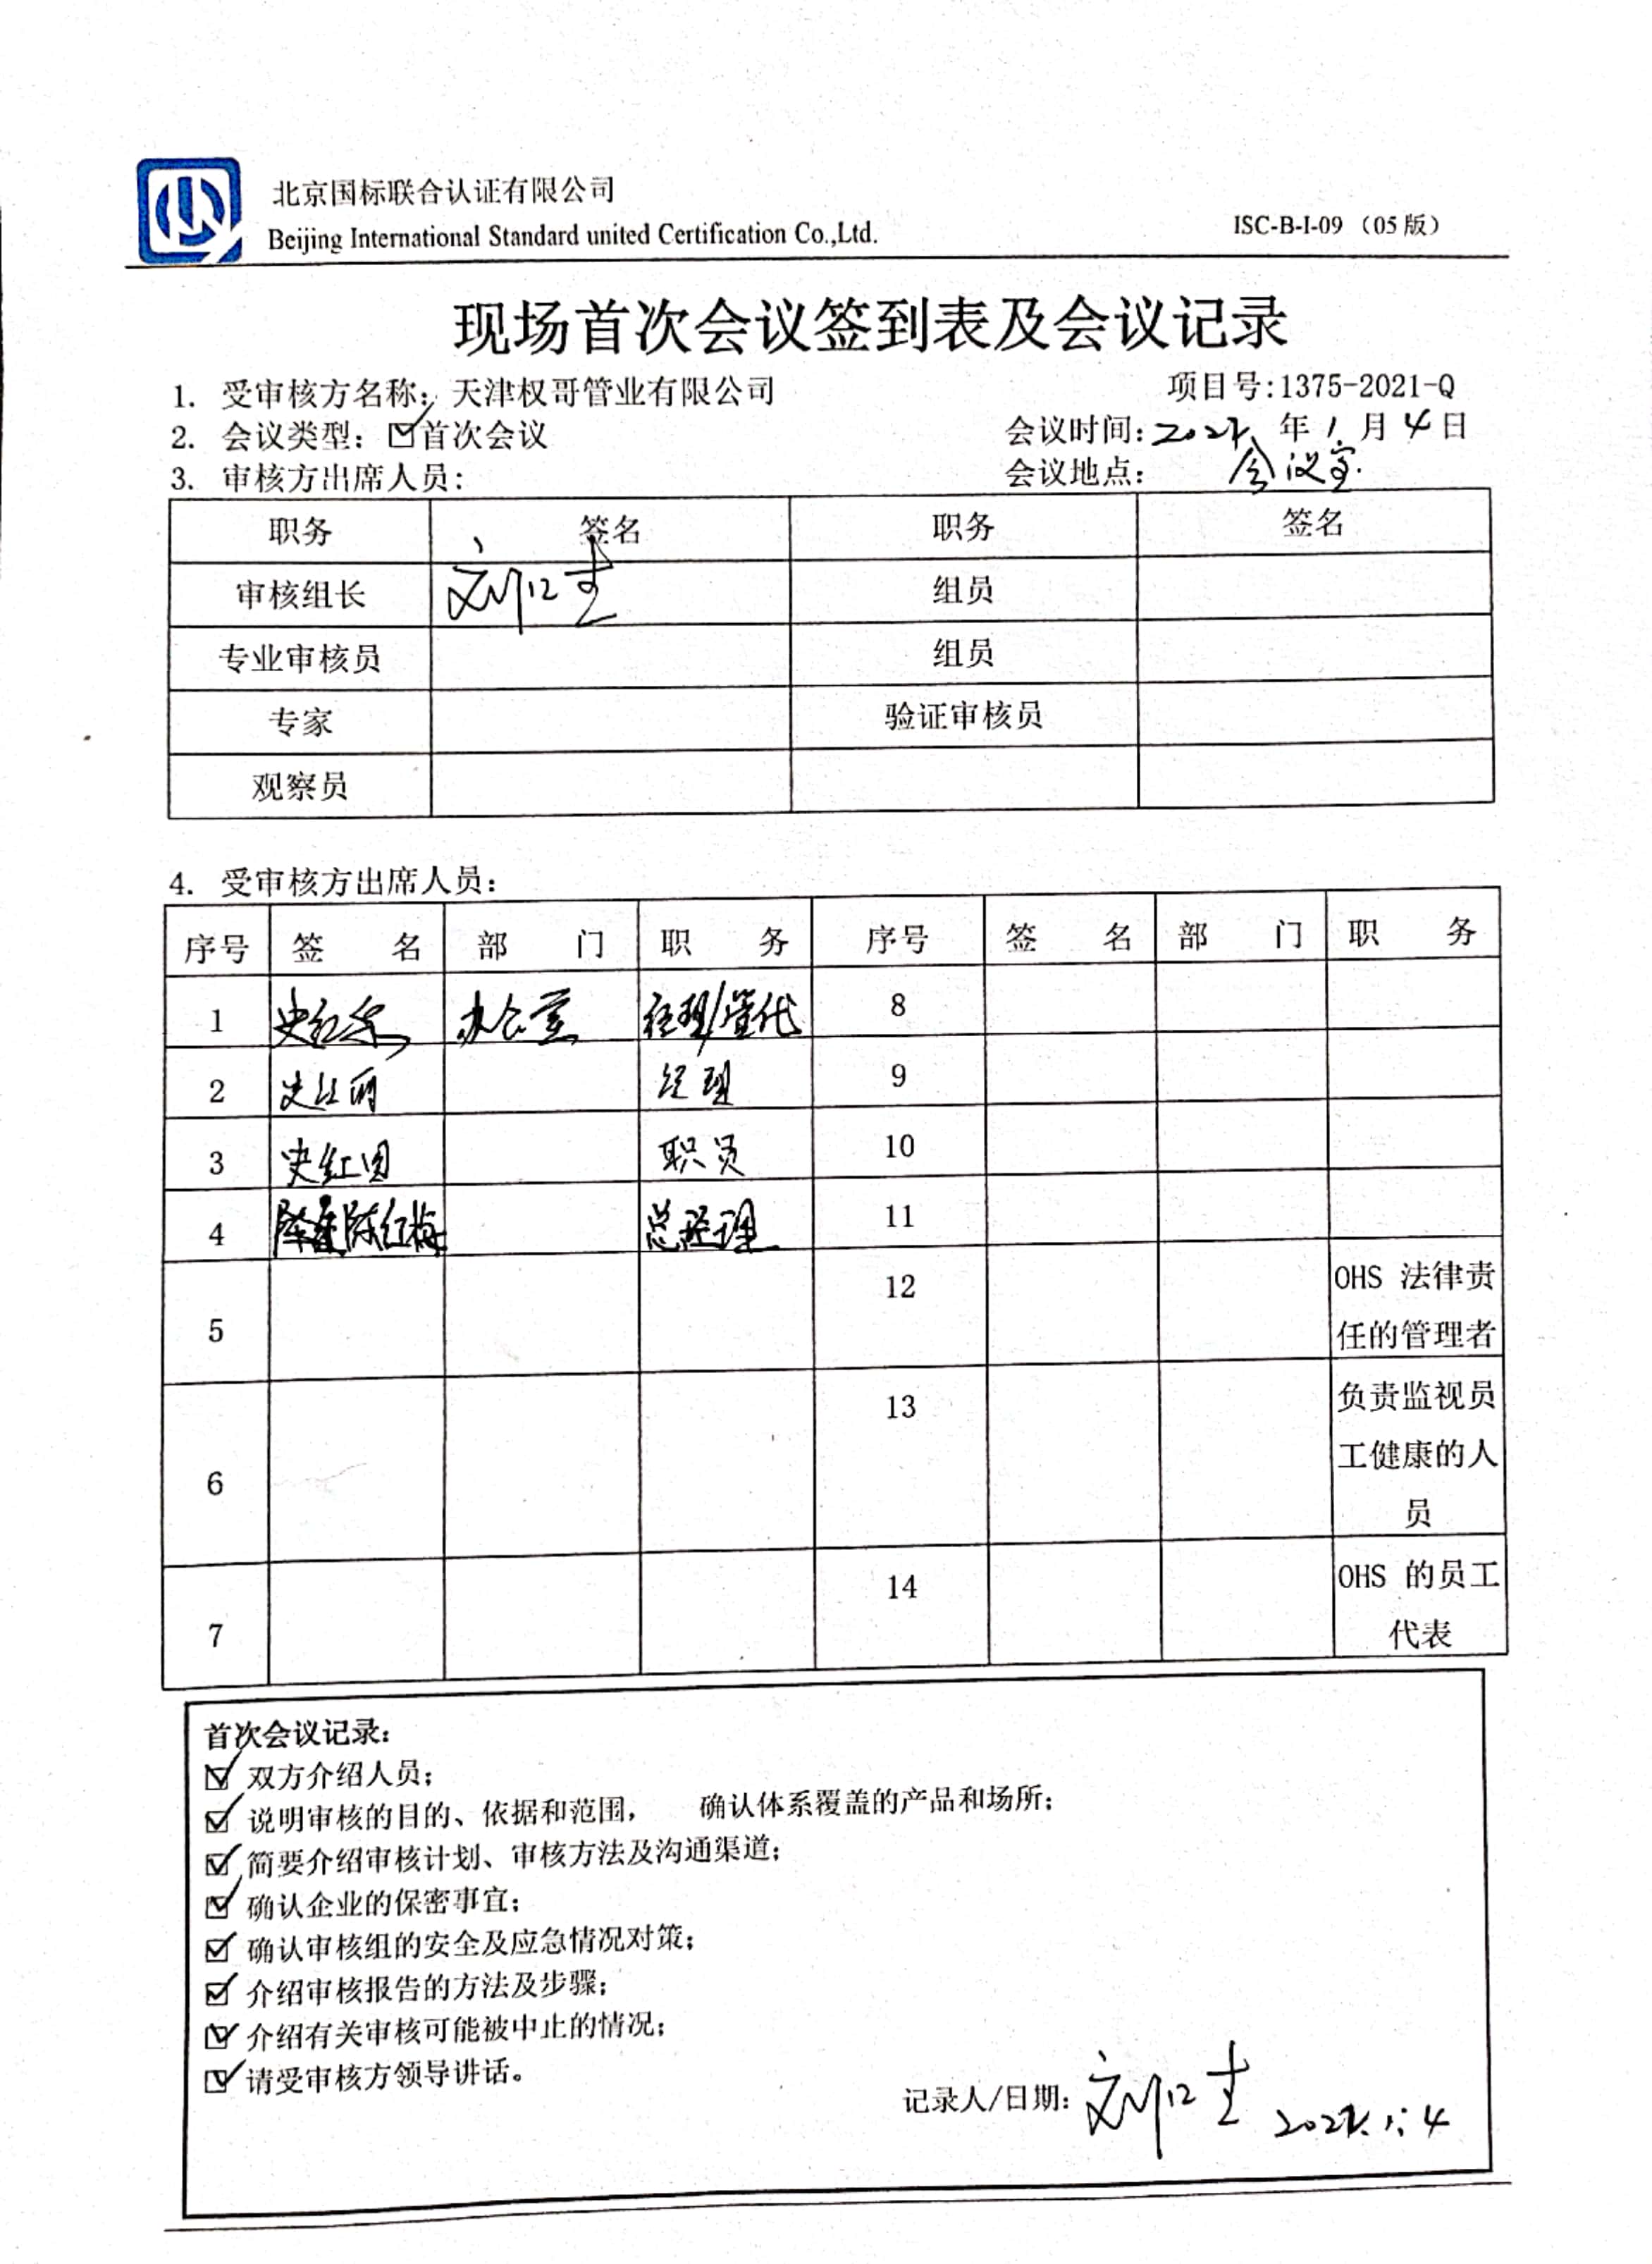 北京国标联合认证有限公司
Beijing International Standard united Certification Co.,Ltd.
ISC-B-I-09 （05版）
现场首次会议签到表及会议记录
1. 受审核方名称：天津权哥管业有限公司 项目号:1375-2021-Q
2. 会议类型：☑首次会议 会议时间: 年 1 月 4 日
3. 审核方出席人员： 会议地点： 会议室.
职务 签名 职务 签名
审核组长 组员
专业审核员 组员
专家 验证审核员
观察员
4. 受审核方出席人员：
序号 签 名 部 门 职 务 序号 签 名 部 门 职 务
1 办公室 经理/管代 8
2 经理 9
3 职员 10
4 陈红梅 总经理 11
5 12 OHS 法律责任的管理者
6 13 负责监视员工健康的人员
7 14 OHS 的员工代表
首次会议记录：
☑ 双方介绍人员；
☑ 说明审核的目的、依据和范围， 确认体系覆盖的产品和场所；
☑ 简要介绍审核计划、审核方法及沟通渠道；
☑ 确认企业的保密事宜；
☑ 确认审核组的安全及应急情况对策；
☑ 介绍审核报告的方法及步骤；
☑ 介绍有关审核可能被中止的情况；
☑ 请受审核方领导讲话。
记录人/日期：